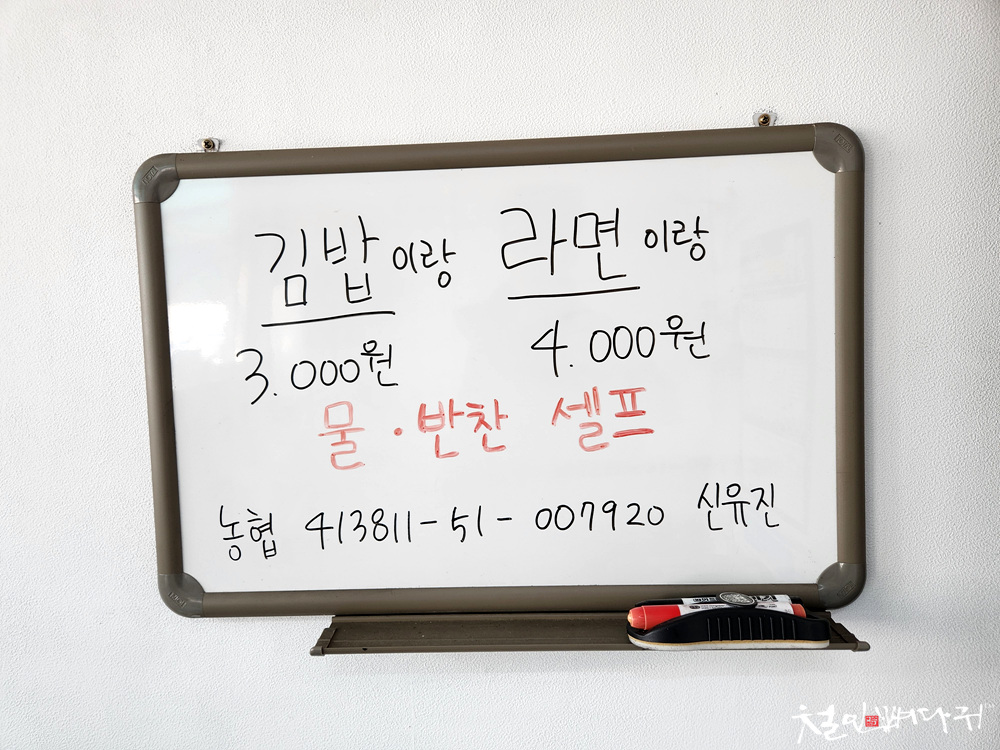 김밥이랑 라면이랑
3.000원 4.000원
물·반찬 셀프
농협 413811-51-007920 신유진
철인뼈다귀